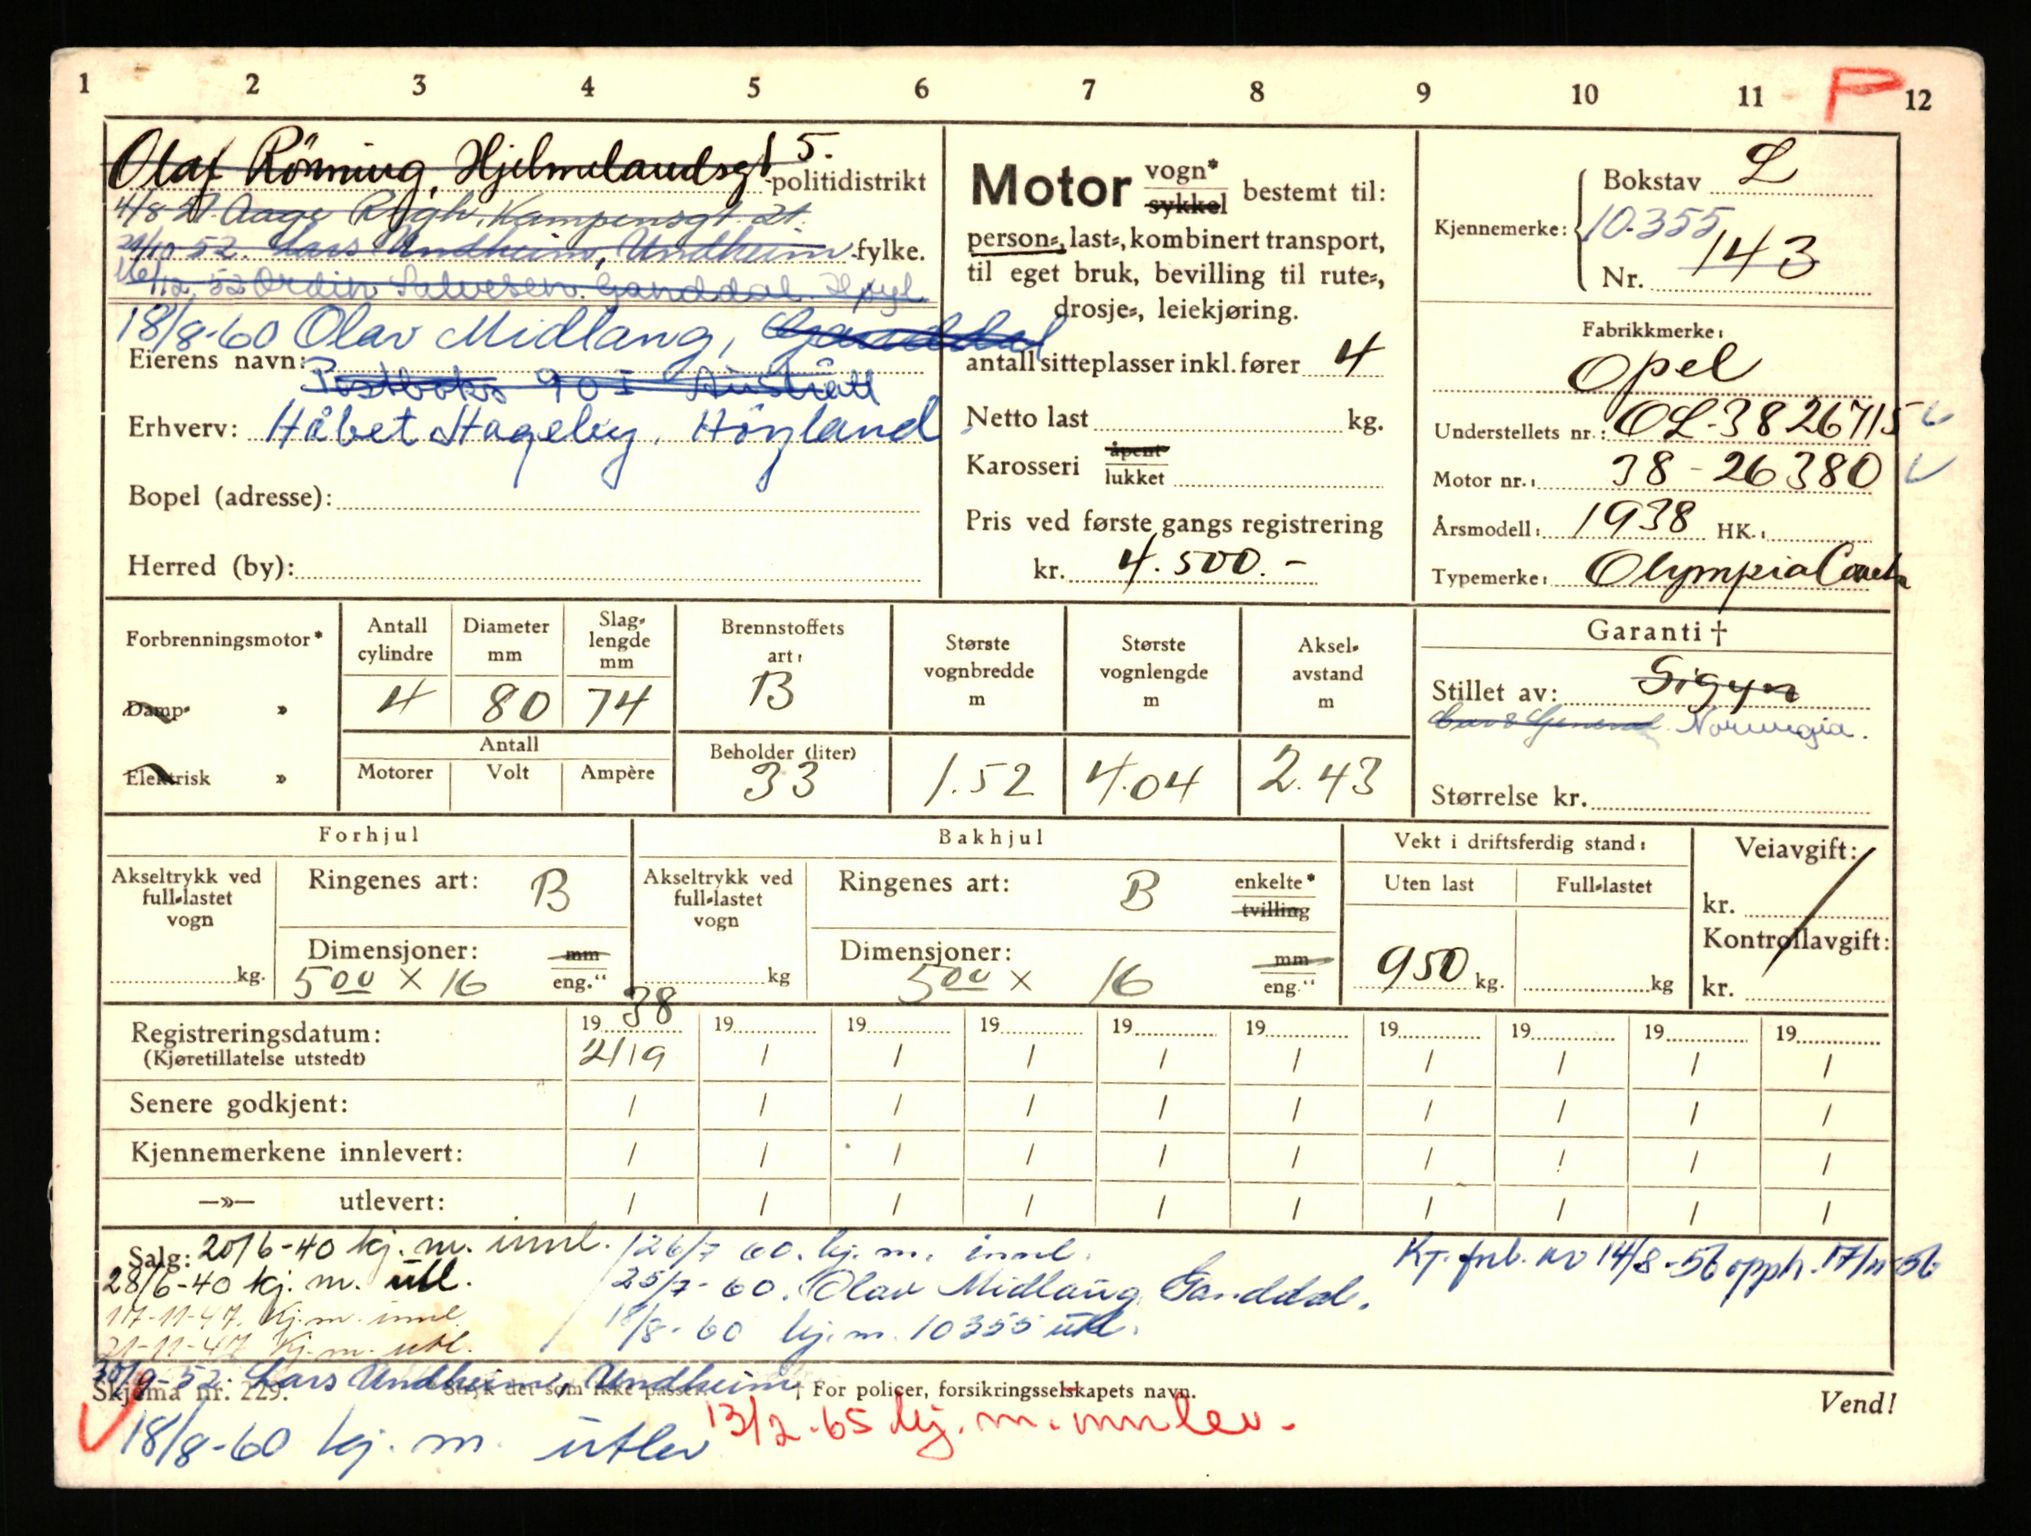 1 2 3 4 5 6 7 8 9 10 11 12
P
Olaf Rönning, Hjelmelandsgt 5.
politidistrikt
4/8-51 Aage Kampensgt 21.
20/10-52. Lars Undheim, Undheim fylke.
16/12.53 Ordin Salvesen. Ganddal.
18/8-60 Olav Midlang, Ganddal
Eierens navn:
Postboks 90 I Austrått
Erhverv: Håbet Hageby, Höyland
Bopel (adresse):
Herred (by):
Motor vogn* sykkel bestemt til:
person-, last-, kombinert transport,
til eget bruk, bevilling til rute-,
drosje-, leiekjøring.
antall sitteplasser inkl. fører 4
Netto last kg.
Karosseri åpent lukket
Pris ved første gangs registrering
kr. 4.500.-
Kjennemerke: Bokstav L
10.355
Nr. 143
Fabrikkmerke:
Opel
Understellets nr.: OL-3826715
Motor nr.: 38-26380
Årsmodell: 1938 HK.:
Typemerke: Olympia
Forbrenningsmotor*
Damp- »
Elektrisk »
Antall cylindre 4
Diameter mm 80
Slaglengde mm 74
Antall
Motorer Volt Ampère
Brennstoffets art: B
Beholder (liter) 33
Største vognbredde m 1.52
Største vognlengde m 4.04
Akselavstand m 2.43
Garanti †
Stillet av: Sigyn
Norwegia.
Størrelse kr.
Forhjul
Akseltrykk ved full-lastet vogn
kg.
Ringenes art: B
Dimensjoner: mm eng."
5⁰⁰ x 16
Bakhjul
Akseltrykk ved full-lastet vogn
kg
Ringenes art: B enkelte* tvilling
Dimensjoner: mm eng."
5⁰⁰ x 16
Vekt i driftsferdig stand:
Uten last Full-lastet
950 kg. kg
Veiavgift:
kr.
Kontrollavgift:
kr.
Registreringsdatum: 19 38 19 19 19 19 19 19 19 19 19
(Kjøretillatelse utstedt) 2/19 / / / / / / / / /
Senere godkjent: / / / / / / / / / /
Kjennemerkene innlevert: / / / / / / / / / /
—»— utlevert: / / / / / / / / / /
Salg: 20/6-40 kj. m. innl.
28/6-40 kj. m. utl.
17-11-47. Kj. m. innl.
21-11-47 Kj. m. utl.
30/9-52. Lars Undheim, Undheim
26/7 60. kj. m. innl.
25/7-60. Olav Midlang Ganddal.
18/8-60 kj. m. 10355 utl.
Kj. forb. av 14/8-56 opph. 17/11-56
Skjema nr. 229. Stryk det som ikke passer. † For policer, forsikringsselskapets navn.
Vend!
18/8-60 kj. m. utlev
13/2-65 kj. m. innlev.